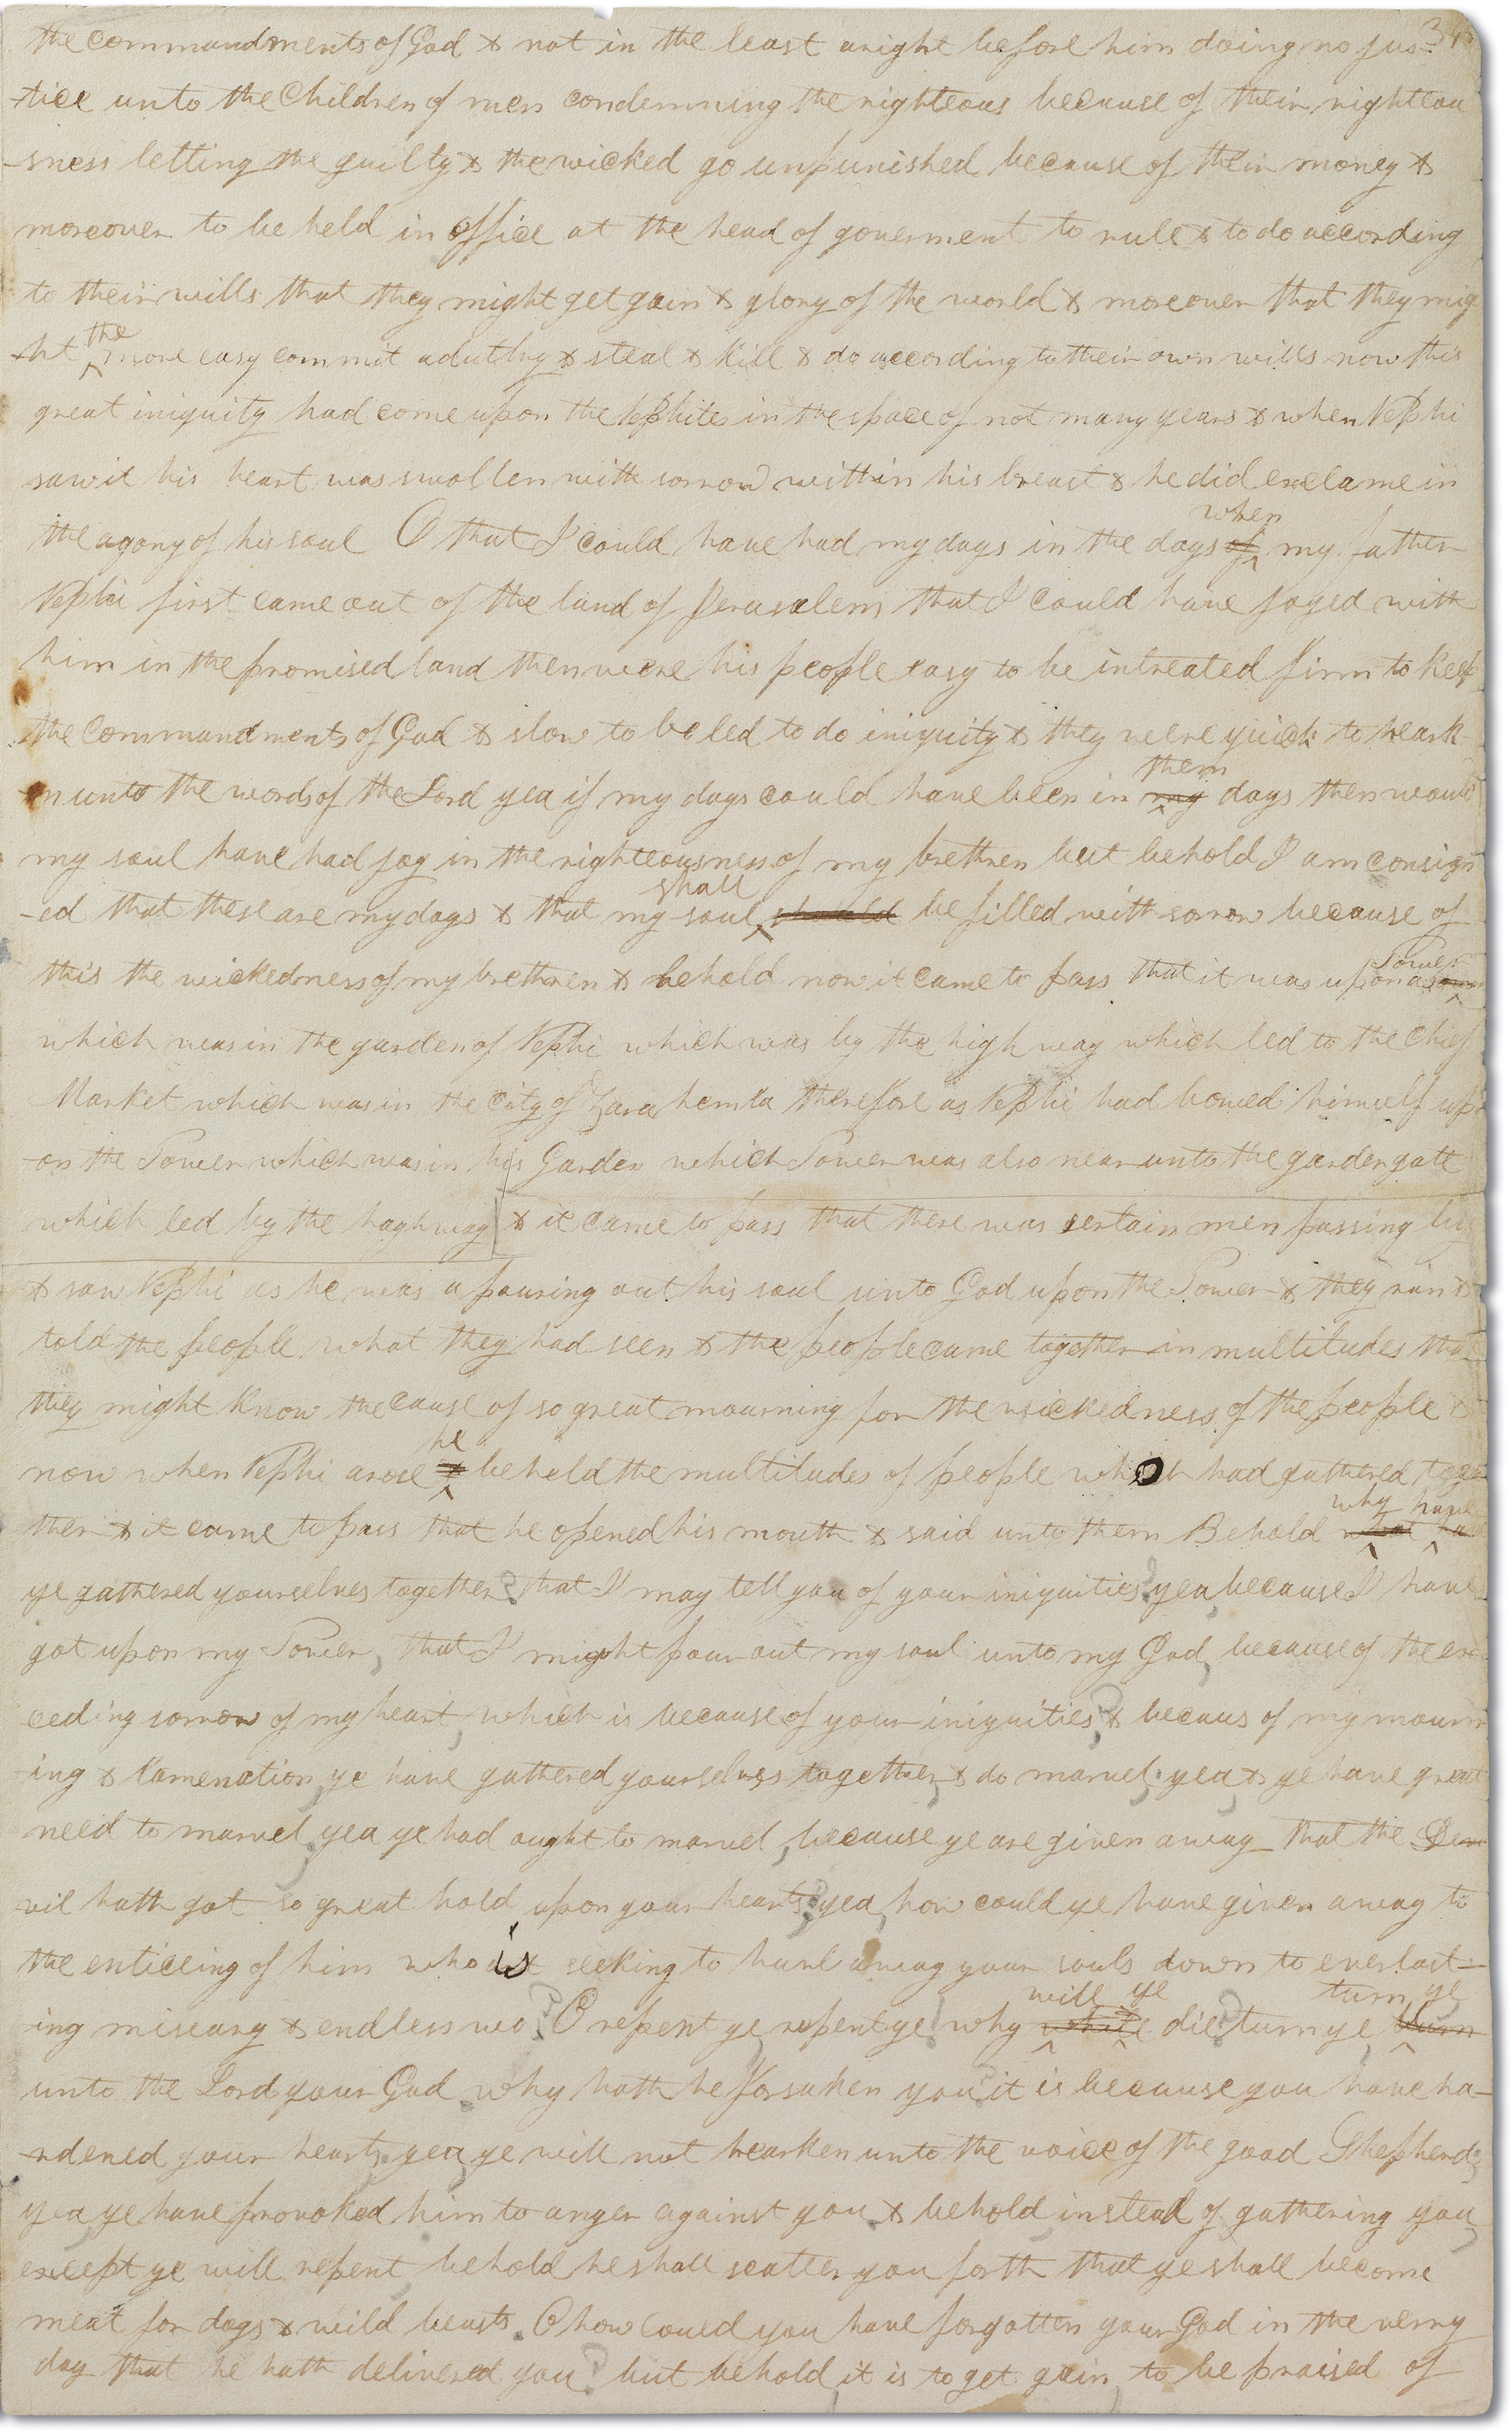 the commandments of God & not in the least aright before him doing no jus-
-tice unto the Children of men condemning the righteous because of their righteou
-sness letting the guilty & the wicked go unpunished because of their money &
moreover to be held in office at the head of goverment to rule & to do according
to their wills that they might get gain & glory of the world & moreover that they mig
-ht the more easy commit adultry & steal & kill & do according to their own wills now this
great iniquity had come upon the Nephites in the space of not many years & when Nephi
saw it his heart was swollen with sorrow within his breast & he did exclame in
the agony of his soul O that I could have had my days in the days of when my father
Nephi first came out of the land of Jerusalem that I could have joyed with
him in the promised land then were his people easy to be intreated firm to keep
the commandments of God & slow to be led to do iniquity & they were quick to heark
-en unto the words of the Lord yea if my days could have been in my them days then would
my soul have had joy in the righteousness of my brethren but behold I am consign
-ed that these are my days & that my soul should shall be filled with sorrow because of
this the wickedness of my brethren & behold now it came to pass that it was upon a Tower
which was in the garden of Nephi which was by the high way which led to the chief
Market which was in the City of Zarahemla therefore as Nephi had bowed himself up
-on the Tower which was in his Garden which Tower was also near unto the garden gate
which led by the haghway & it came to pass that there was certain men passing by
& saw Nephi as he was a pouring out his soul unto God upon the Tower & they ran &
told the people what they had seen & the people came together in multitudes that
they might know the cause of so great mourning for the wickedness of the people &
now when Nephi arose & he beheld the multitudes of people who had gathered toge
ther & it came to pass that he opened his mouth & said unto them Behold what why have
ye gathered yourselves together? that I may tell you of your iniquities? yea, because I have
got upon my Tower, that I might pour out my soul unto my God, because of the exc
ceeding sorrow of my heart, which is because of your iniquities? & becaus of my mourn
-ing & lamenation, ye have gathered yourselves together, & do marvel; yea, & ye have great
need to marvel, yea ye had ought to marvel, because ye are given away that the De
vil hath got so great hold upon your hearts? yea, how could ye have given away to
the enticeing of him who is seeking to hurl away your souls down to everlast-
ing miseary & endless wo? O repent ye, repent ye! why will ye die? turn ye, turn ye
unto the Lord your God why hath he forsaken you? it is because you have ha-
-rdened your hearts; yea, ye will not hearken unto the voice of the good Shepherd;
yea ye have provoked him to anger against you, & behold, instead of gathering you,
except ye will repent, behold he shall scatter you forth that ye shall become
meat for dogs & wild beasts. O how could you have forgotten your God in the verry
day that he hath delivered you? but behold, it is to get gain, to be praised of